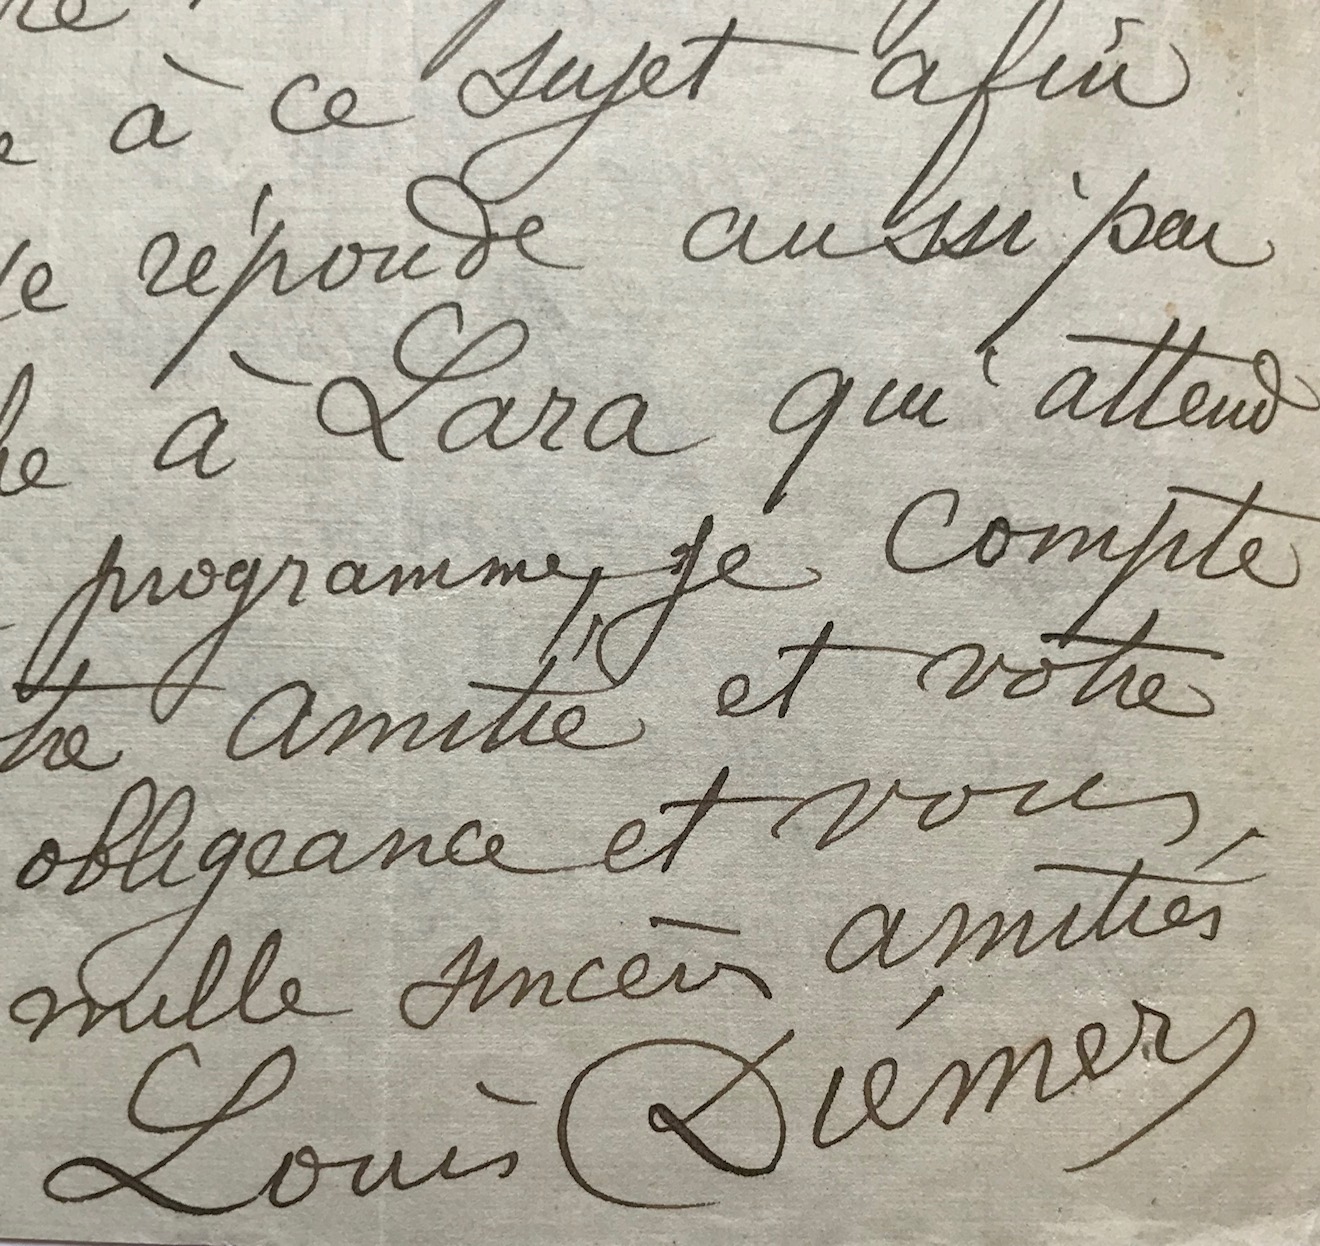 à ce sujet afin
réponde aussi par
à Lara qui attend
programme, je compte
amitié et votre
obligeance et vous
mille sincères amitiés
Louis Diémer